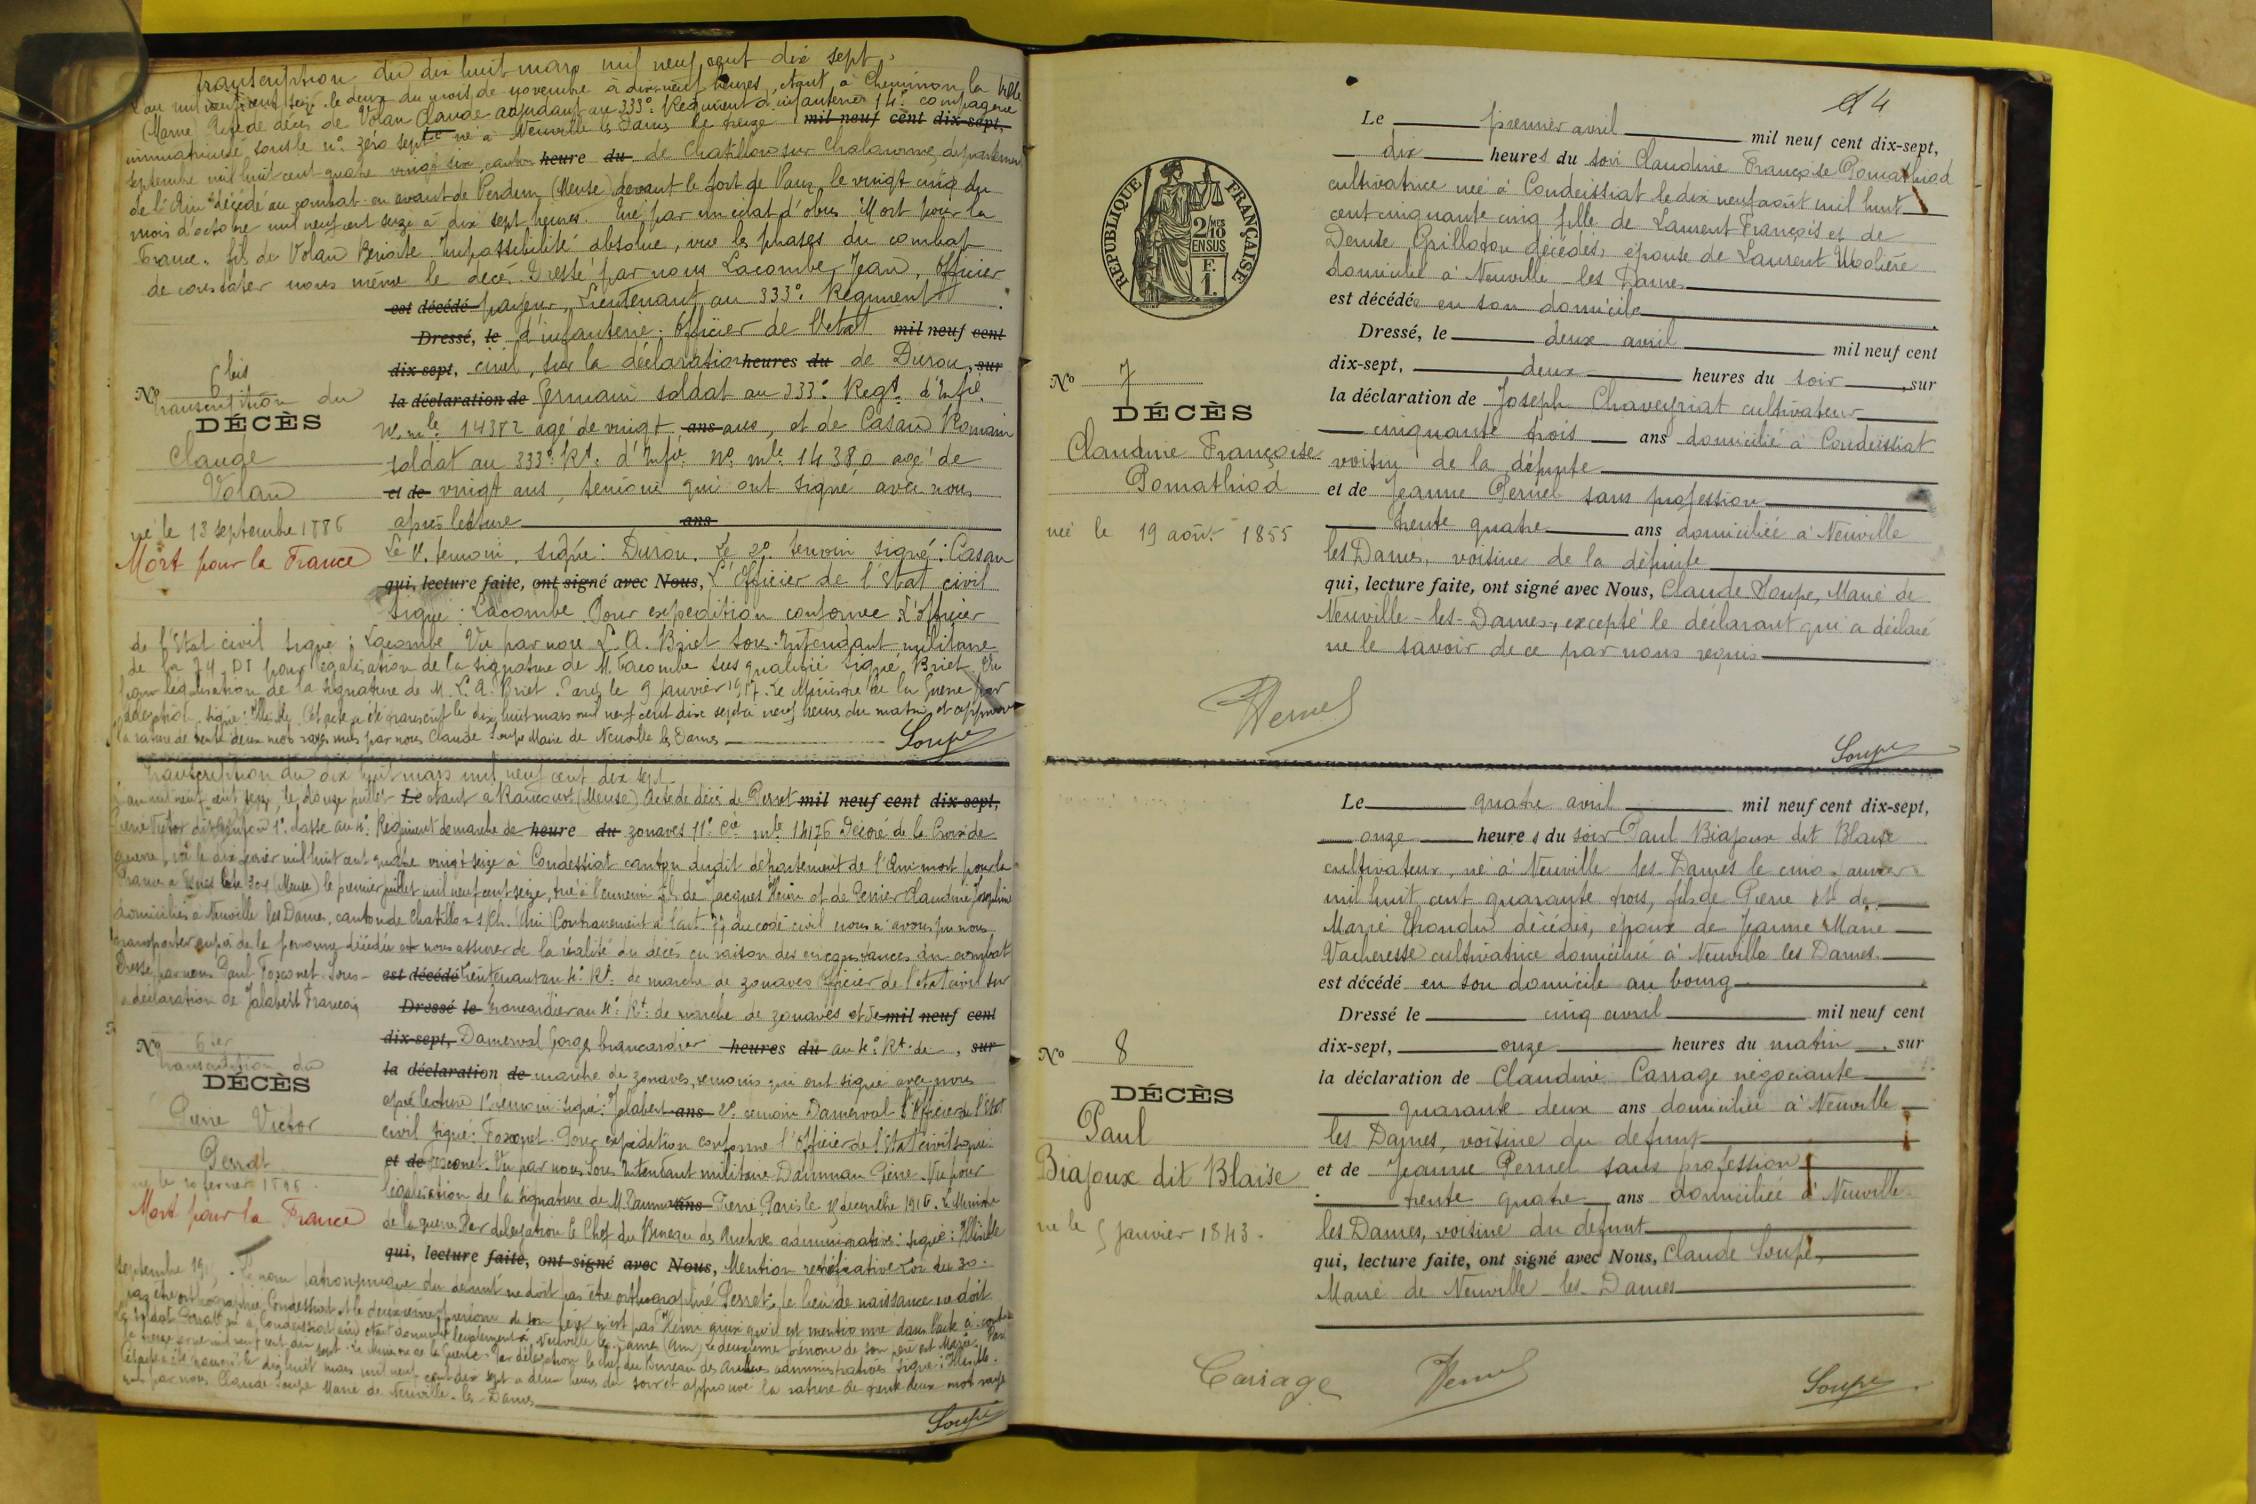 transcription du dix huit mars mil neuf cent dix sept.
L'an mil neuf cent seize le deux du mois de novembre à dix-neuf heures, étant à Cheminon la Ville
(Marne) Acte de décès de Volan Claude adjudant au 333e Régiment d'infanterie 14e compagnie
immatriculé sous le n° zéro sept Le né à Neuville les Dames le treize mil neuf cent dix-sept,
septembre mil huit cent quatre vingt six, canton heure du de Chatillon sur Chalaronne, département
de l'Ain décédé au combat en avant de Verdun (Meuse) devant le fort de Vaux le vingt cinq du
mois d'octobre mil neuf cent seize à dix sept heures. Tué par un éclat d'obus Mort pour la
France. fils de Volan Benoite. Impossibilité absolue, vu les phases du combat
de constater nous même le décès. Dressé par nous Lacombe, Jean, officier
est décédé payeur, Lieutenant au 333e Régiment
Dressé, le d'infanterie. Officier de l'état mil neuf cent
dix-sept, civil, sur la déclaration heures du de Durou, sur
la déclaration de Germain soldat au 333e Regt d'Infie
N° mle 14382 agé de vingt ans ans, et de Casau Romain
soldat au 333e Rt. d'Infie N° mle 14380 agé de
et de vingt ans, temoins qui ont signé avec nous
après lecture ans
Le 1er temoin, signé: Durou. Le 2e temoin signé: Casau
qui, lecture faite, ont signé avec Nous, L'Officier de l'Etat civil
signé: Lacombe. Pour expedition conforme L'officier
de l'Etat civil signé: Lacombe Vu par nous L. A. Briet sous-Intendant militaire
de la 74 DI pour légalisation de la signature de M. Lacombe sus qualifié signé, Briet, Vu
pour légalisation de la signature de M. L. A. Briet. Paris le 9 janvier 1917. Le Ministre de la Guerre par
délégation, signé: Cet acte a été transcrit le dix huit mars mil neuf cent dix sept à neuf heures du matin et approuvé
la rature de trente deux mots rayés nuls par nous Claude Soupe Maire de Neuville les Dames
Soupe
N° 6 bis
transcription du
DÉCÈS
Claude
Volan
né le 13 septembre 1886
Mort pour la France
Transcription du dix huit mars mil neuf cent dix sept
L'an mil neuf cent seize, le douze juillet Le étant à Rancourt (Meuse) Acte de décès de Perret mil neuf cent dix-sept,
Pierre Victor 1e classe au 4e Régiment de marche de heure du zouaves 11e Cie mle 14176 Décoré de la Croix de
guerre, né le dix février mil huit cent quatre vingt seize à Condeissiat canton dudit département de l'Ain mort pour la
France à (Meuse) le premier juillet mil neuf cent seize, tué à l'ennemi fils de Jacques Henri et de Perrier Claudine Josephine
domiciliés à Neuville les Dames, canton de Chatillon s/Ch. (Ain) Contrairement à l'art. 77 du code civil nous n'avons pu nous
transporter auprès de la personne décédée et nous assurer de la réalité du décès en raison des circonstances du combat
Dressé par nous Paul Foxonet Sous- est décédé Lieutenant au 4e Rt. de marche de zouaves Officier de l'état civil sur
la déclaration de Jalabert François Dressé le brancardier au 4e Rt. de marche de zouaves et de mil neuf cent
dix-sept, Damerval Georges brancardier heures du au 4e Rt. de , sur
la déclaration de marche de zouaves, temoins qui ont signé avec nous
après lecture 1er temoin signé: Jalabert ans 2e temoin Damerval L'Officier de l'Etat
civil signé: Foxonet. Pour expédition conforme l'Officier de l'Etat civil signé:
et de Foxonet. Vu par nous Sous Intendant militaire Daumnau Pierre. Vu pour
légalisation de la signature de M. ans Pierre Paris le 18 decembre 1916. Le Ministre
de la guerre. Par délégation le Chef du Bureau des Archives administratives: signé:
qui, lecture faite, ont signé avec Nous, Mention rectificative Loi du 30
septembre 191 . Le nom patronymique du défunt ne doit pas être orthographié Perret, le lieu de naissance ne doit
pas être orthographié Condeissiat et le deuxième prénom de son père n'est pas Henri ainsi qu'il est mentionné dans l'acte ci-contre
Le soldat Perrat né à Condeissiat (Ain) était domicilié légalement à Neuville les Dames (Ain) le deuxième prénom de son père est Marie. Paris
le treize janvier mil neuf cent dix sept. Le Ministre de la Guerre. Par délégation le Chef du Bureau des Archives administratives signé:
Cet acte a été transcrit le dix huit mars mil neuf cent dix sept à deux heures du soir et approuvé la rature de trente deux mots rayés
nuls par nous Claude Soupe Maire de Neuville-les-Dames
Soupe
N° 6 ter
transcription du
DÉCÈS
Pierre Victor
Perrat
né le 10 fevrier 1896
Mort pour la France
14
RÉPUBLIQUE FRANÇAISE
2/10 MES
EN SUS
F.
1.
Le premier avril mil neuf cent dix-sept,
dix heures du soir Claudine Françoise Pomathiod
cultivatrice née à Condeissiat le dix neuf août mil huit
cent cinquante cinq fille de Laurent François et de
Denise Grilloton décédés, épouse de Laurent Molière
domicilié à Neuville les Dames
est décédée en son domicile
Dressé, le deux avril mil neuf cent
dix-sept, deux heures du soir, sur
la déclaration de Joseph Chaveyriat cultivateur
cinquante trois ans domicilié à Condeissiat
voisin de la défunte
et de Jeanne Pernel sans profession
trente quatre ans domiciliée à Neuville
les Dames, voisine de la défunte
qui, lecture faite, ont signé avec Nous, Claude Soupe, Maire de
Neuville-les-Dames, excepté le déclarant qui a déclaré
ne le savoir de ce par nous requis
Pernel
Soupe
N° 7
DÉCÈS
Claudine Françoise
Pomathiod
née le 19 août 1855
Le quatre avril mil neuf cent dix-sept,
onze heures du soir Paul Biajoux dit Blaise
cultivateur, né à Neuville les Dames le cinq janvier
mil huit cent quarante trois, fils de Pierre et de
Marie Chondu décédés, époux de Jeanne Marie
Vacheresse cultivatrice domiciliée à Neuville les Dames
est décédé en son domicile au bourg
Dressé le cinq avril mil neuf cent
dix-sept, onze heures du matin, sur
la déclaration de Claudine Carrage négociante
quarante deux ans domiciliée à Neuville
les Dames, voisine du defunt
et de Jeanne Pernel sans profession
trente quatre ans domiciliée à Neuville
les Dames, voisine du defunt
qui, lecture faite, ont signé avec Nous, Claude Soupe,
Maire de Neuville-les-Dames
Carrage
Pernel
Soupe
N° 8
DÉCÈS
Paul
Biajoux dit Blaise
né le 5 janvier 1843.